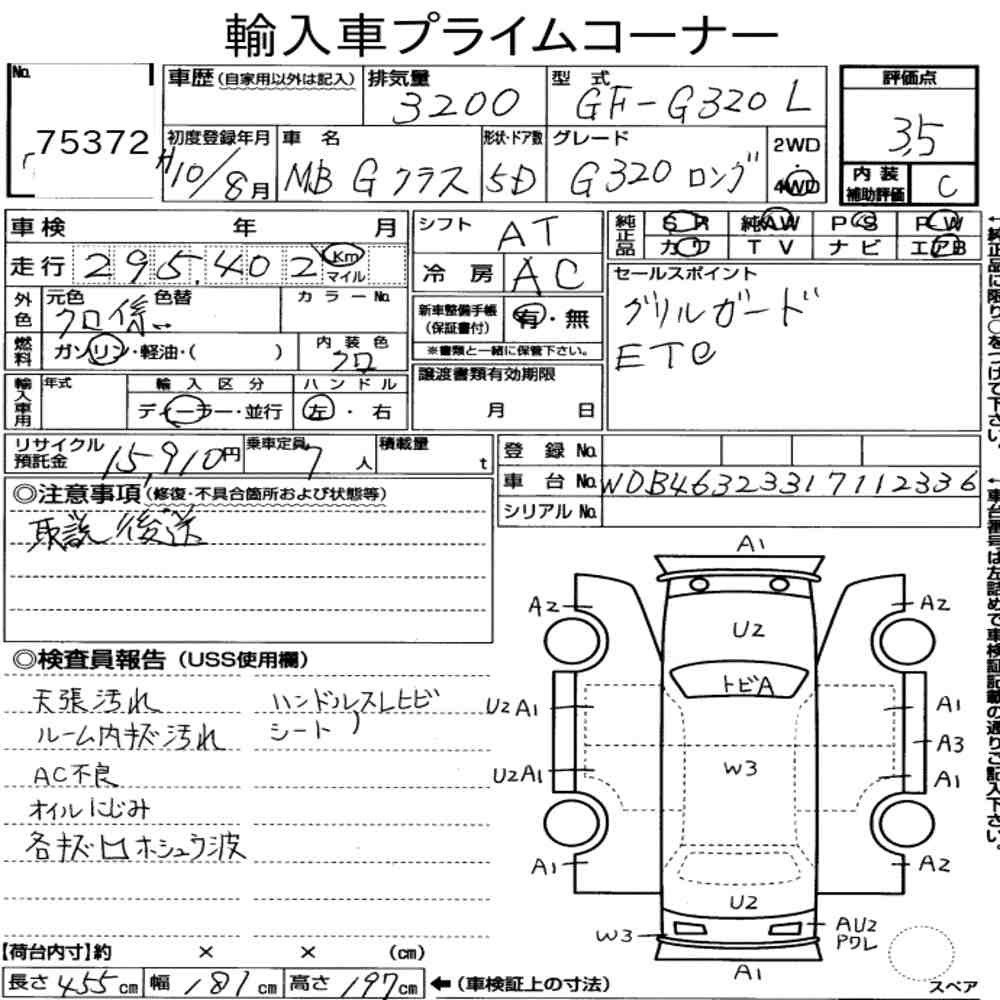 輸入車プライムコーナー
No. 75372
車歴 (自家用以外は記入) 排気量 3200 型式 GF-G320L 評価点 3.5
初度登録年月 H10/8月 車名 MB Gクラス 形状・ドア数 5D グレード G320 ロング 2WD・4WD 内装補助評価 C
車検 年 月 シフト AT 純正品 SR 純AW PS PW
走行 295,402 Km マイル 冷房 AC カワ TV ナビ エアB
外色 元色 色替 クロ カラーNo. 新車整備手帳(保証書付) 有・無
※書類と一緒に保管下さい。
セールスポイント
グリルガード
ETC
燃料 ガソリン・軽油・( ) 内装色 クロ
譲渡書類有効期限 月 日
輸入車用 年式 輸入区分 ディーラー・並行 ハンドル 左・右
リサイクル預託金 15,910円 乗車定員 7人 積載量 t
登録No.
車台No. WDB46323317112336
シリアルNo.
◎注意事項(修復・不具合箇所および状態等)
取説後送
◎検査員報告(USS使用欄)
天張汚れ ハンドルスレヒビ
ルーム内キズ汚れ シート 〃
AC不良
オイルにじみ
各キズ凹ホシュウ波
A1
A2 A2
U2
トビA
U2A1 A1
W3 A3
U2A1 A1
A1 A2
U2
W3 AU2
Pワレ
A1
スペア
【荷台内寸】約 × × (cm)
長さ455cm 幅181cm 高さ197cm ←(車検証上の寸法)
←純正品に限り○をつけて下さい。
←車台番号は左詰めで車検証記載の通りご記入下さい。